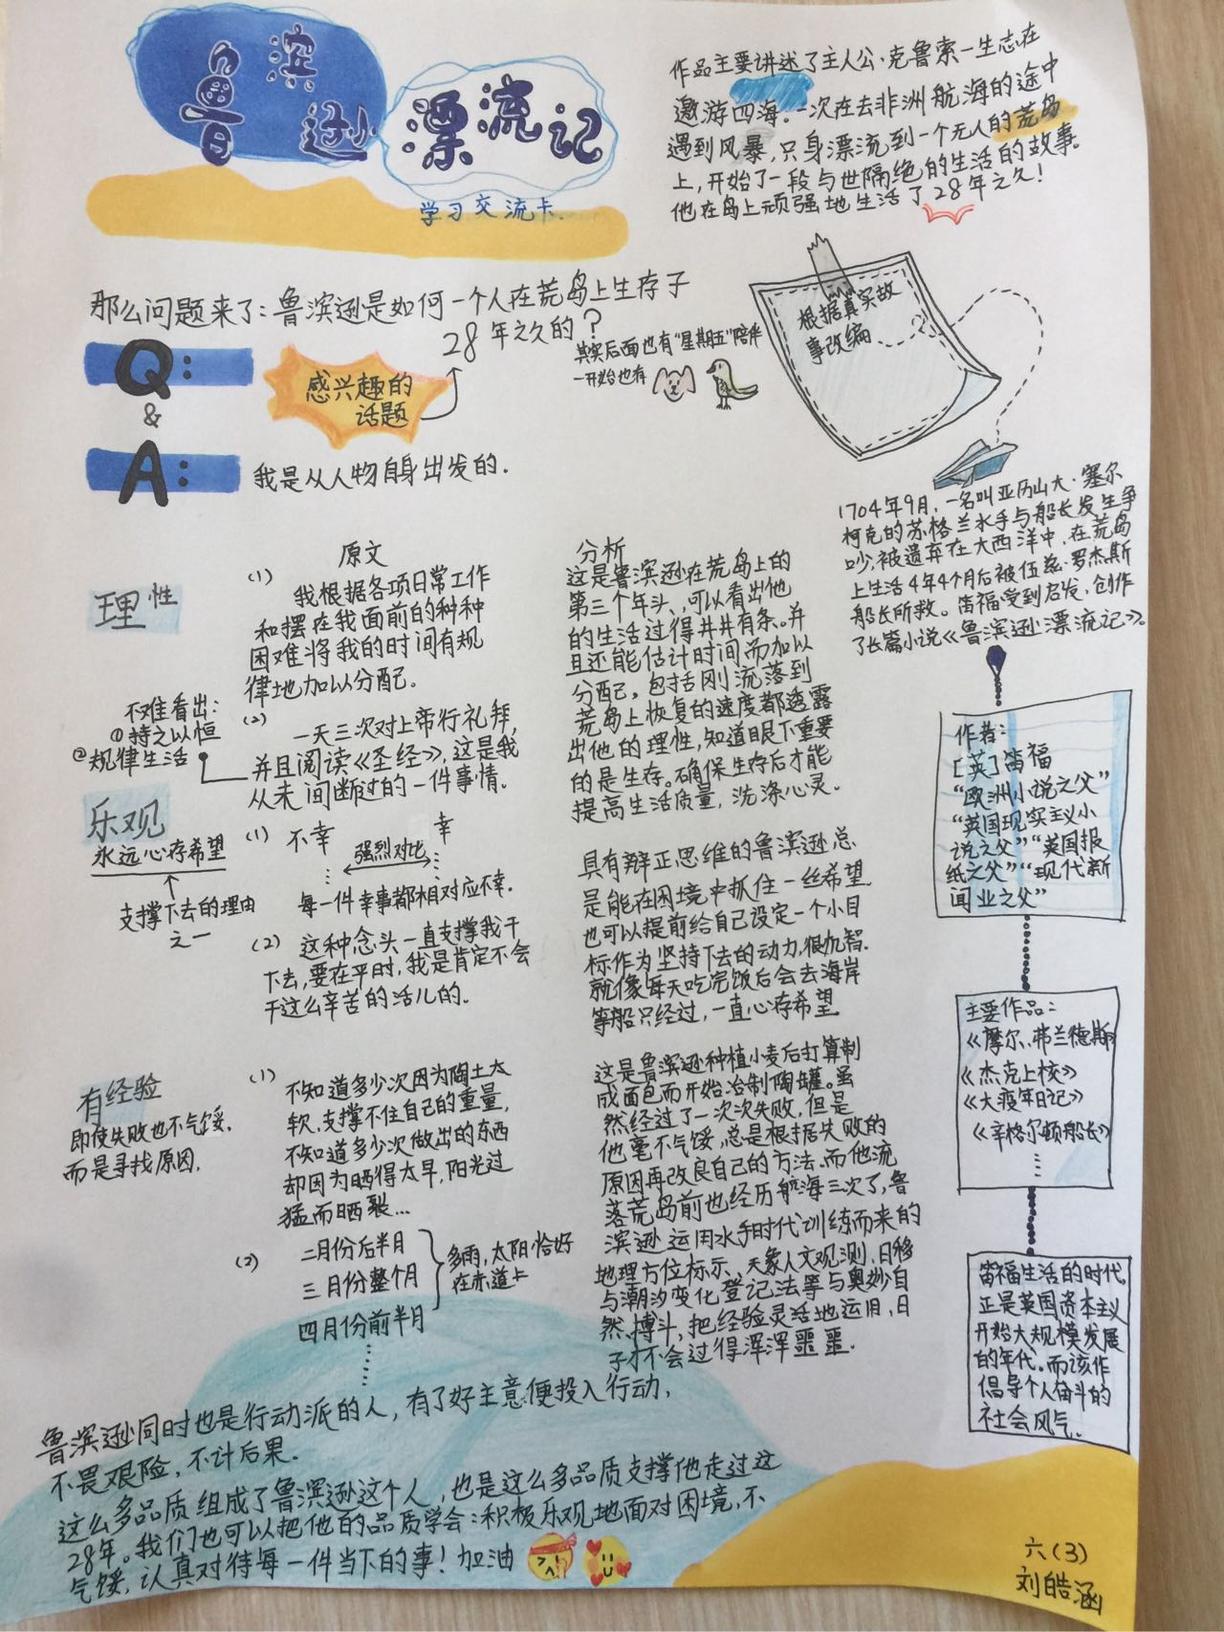 鲁滨逊
漂流记
学习交流卡.
作品主要讲述了主人公·克鲁索一生志在
遨游四海.一次在去非洲航海的途中
遇到风暴,只身漂流到一个无人的荒岛
上,开始了一段与世隔绝的生活的故事。
他在岛上顽强地生活了28年之久!
那么问题来了:鲁滨逊是如何一个人在荒岛上生存了
28年之久的?
其实后面也有“星期五”陪伴
一开始也有
根据真实故
事改编
Q:
&
A:
感兴趣的
话题
我是从人物自身出发的.
1704年9月,一名叫亚历山大·塞尔
柯克的苏格兰水手与船长发生争
吵,被遗弃在大西洋中,在荒岛
上生活4年4个月后被伍兹·罗杰斯
船长所救。笛福受到启发,创作
了长篇小说《鲁滨逊漂流记》。
原文
理性
(1)
我根据各项日常工作
和摆在我面前的种种
困难将我的时间有规
律地加以分配.
不难看出:
①持之以恒
②规律生活
(2)
一天三次对上帝行礼拜,
并且阅读《圣经》,这是我
从未间断过的一件事情。
分析
这是鲁滨逊在荒岛上的
第三个年头,可以看出他
的生活过得井井有条。并
且还能估计时间而加以
分配,包括刚流落到
荒岛上恢复的速度都透露
出他的理性,知道眼下重要
的是生存。确保生存后才能
提高生活质量,洗涤心灵.
乐观
永远心存希望
支撑下去的理由
之一
(1) 不幸 强烈对比 幸
每一件幸事都相对应不幸.
(2) 这种念头一直支撑我干
下去,要在平时,我是肯定不会
干这么辛苦的活儿的.
具有辩正思维的鲁滨逊总
是能在困境中抓住一丝希望
也可以提前给自己设定一个小目
标作为坚持下去的动力,很机智.
就像每天吃完饭后会去海岸
等船只经过,一直心存希望.
有经验
即使失败也不气馁,
而是寻找原因.
(1)
不知道多少次因为陶土太
软,支撑不住自己的重量,
不知道多少次做出的东西
却因为晒得太早,阳光过
猛而晒裂...
(2)
二月份后半月
三月份整个月
四月份前半月
多雨,太阳恰好
在赤道上
这是鲁滨逊种植小麦后打算制
成面包而开始冶制陶罐。虽
然经过了一次次失败,但是
他毫不气馁,总是根据失败的
原因再改良自己的方法.而他流
落荒岛前也经历航海三次了,鲁
滨逊运用水手时代训练而来的
地理方位标示、天象人文观测,日移
与潮汐变化登记法等与奥妙自
然搏斗,把经验灵活地运用,日
子才不会过得浑浑噩噩.
作者:
[英]笛福
“欧洲小说之父”
“英国现实主义小
说之父”“英国报
纸之父”“现代新
闻业之父”
主要作品:
《摩尔、弗兰德斯》
《杰克上校》
《大疫年日记》
《辛格尔顿船长》
笛福生活的时代,
正是英国资本主义
开始大规模发展
的年代.而该作
倡导个人奋斗的
社会风气.
鲁滨逊同时也是行动派的人,有了好主意便投入行动,
不畏艰险,不计后果.
这么多品质组成了鲁滨逊这个人,也是这么多品质支撑他走过这
28年。我们也可以把他的品质学会:积极乐观地面对困境,不
气馁,认真对待每一件当下的事!加油
六(3)
刘皓涵